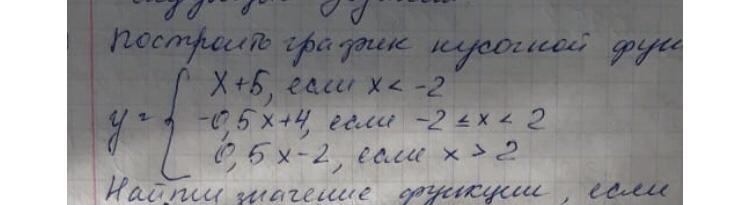 Построить график кусочной фун
x+5, если x < -2
y = { -0,5x+4, если -2 ≤ x < 2
0,5x-2, если x > 2
Найти значение функции, если